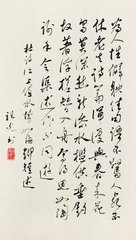 為人性僻耽佳句語不驚人死不
休老去詩篇渾漫與春來花
鳥莫深愁新添水檻供垂釣
故著浮槎替入舟焉得思如陶
謝手令渠述作與同遊
杜詩江上值水如海勢聊短述